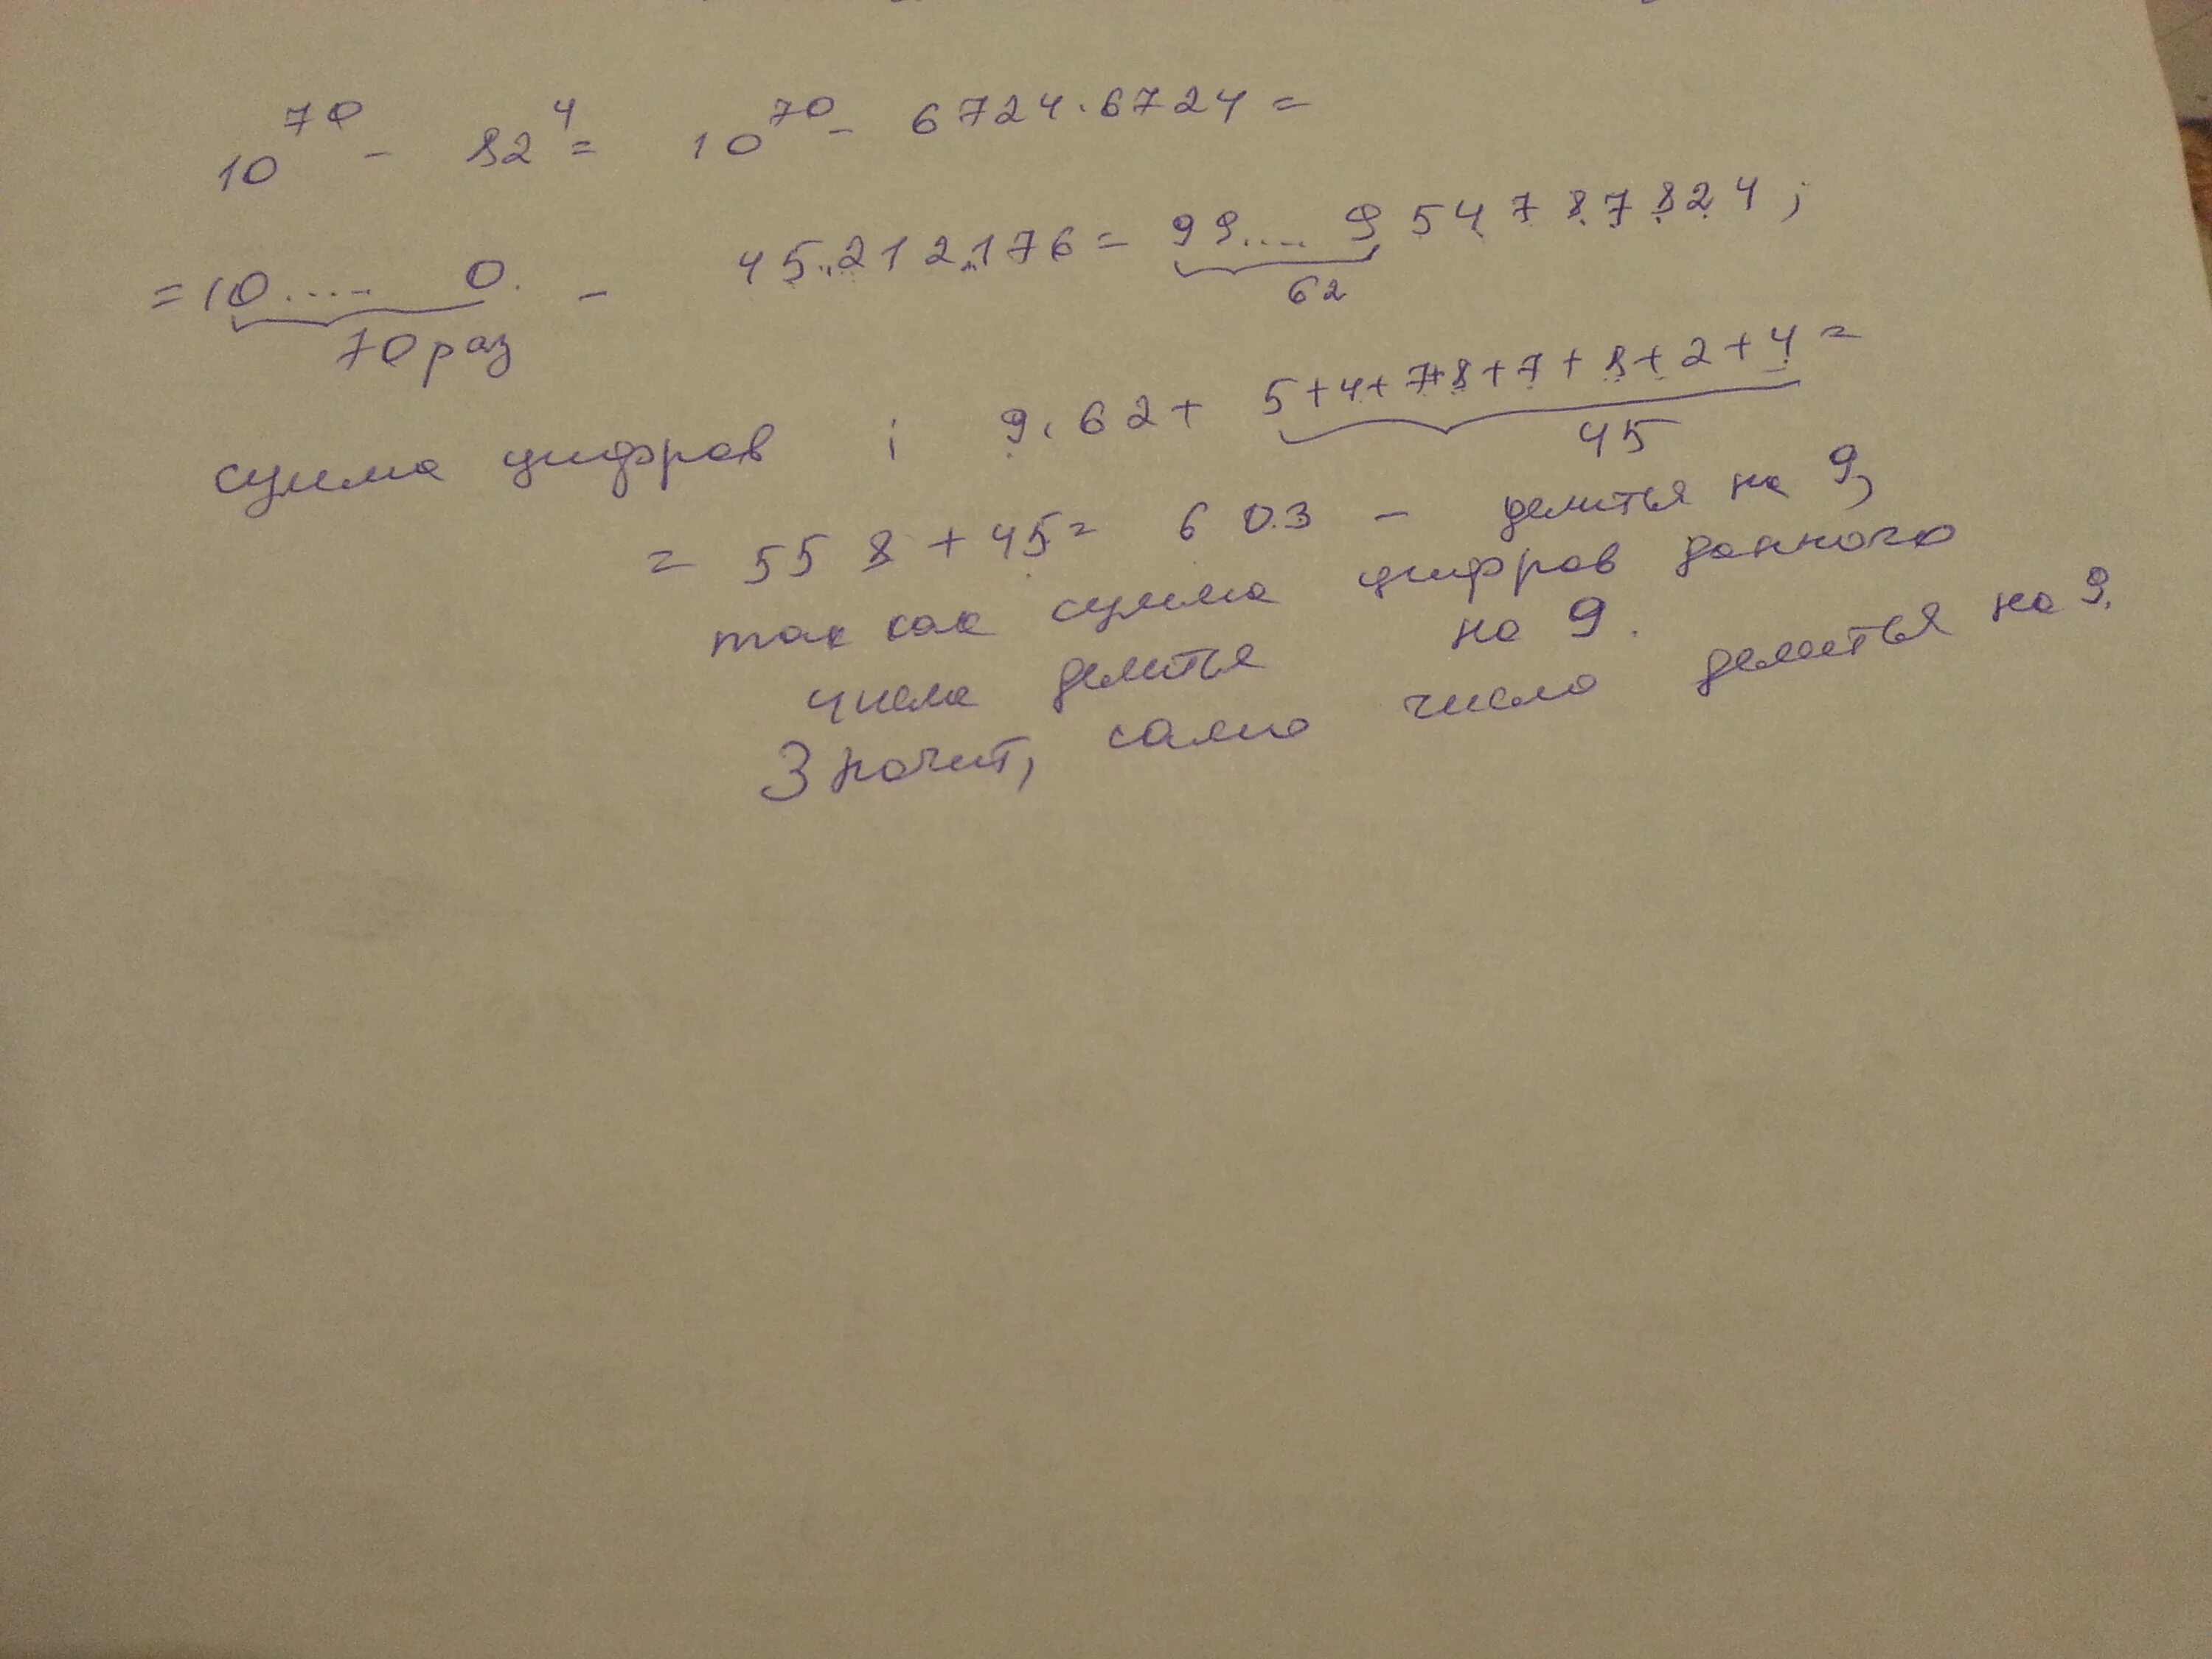 10^70 - 82^4 = 10^70 - 6724·6724 =
= 10.... 0 - 45.212.176 = 99.... 9 54787824;
70 раз 62
сумма цифров ; 9·62+ 5+4+7+8+7+8+2+4=
45
= 558+45= 603 - делитья на 9,
так как сумма цифров данного
числа делитья на 9.
Значит, само число делитья на 9.